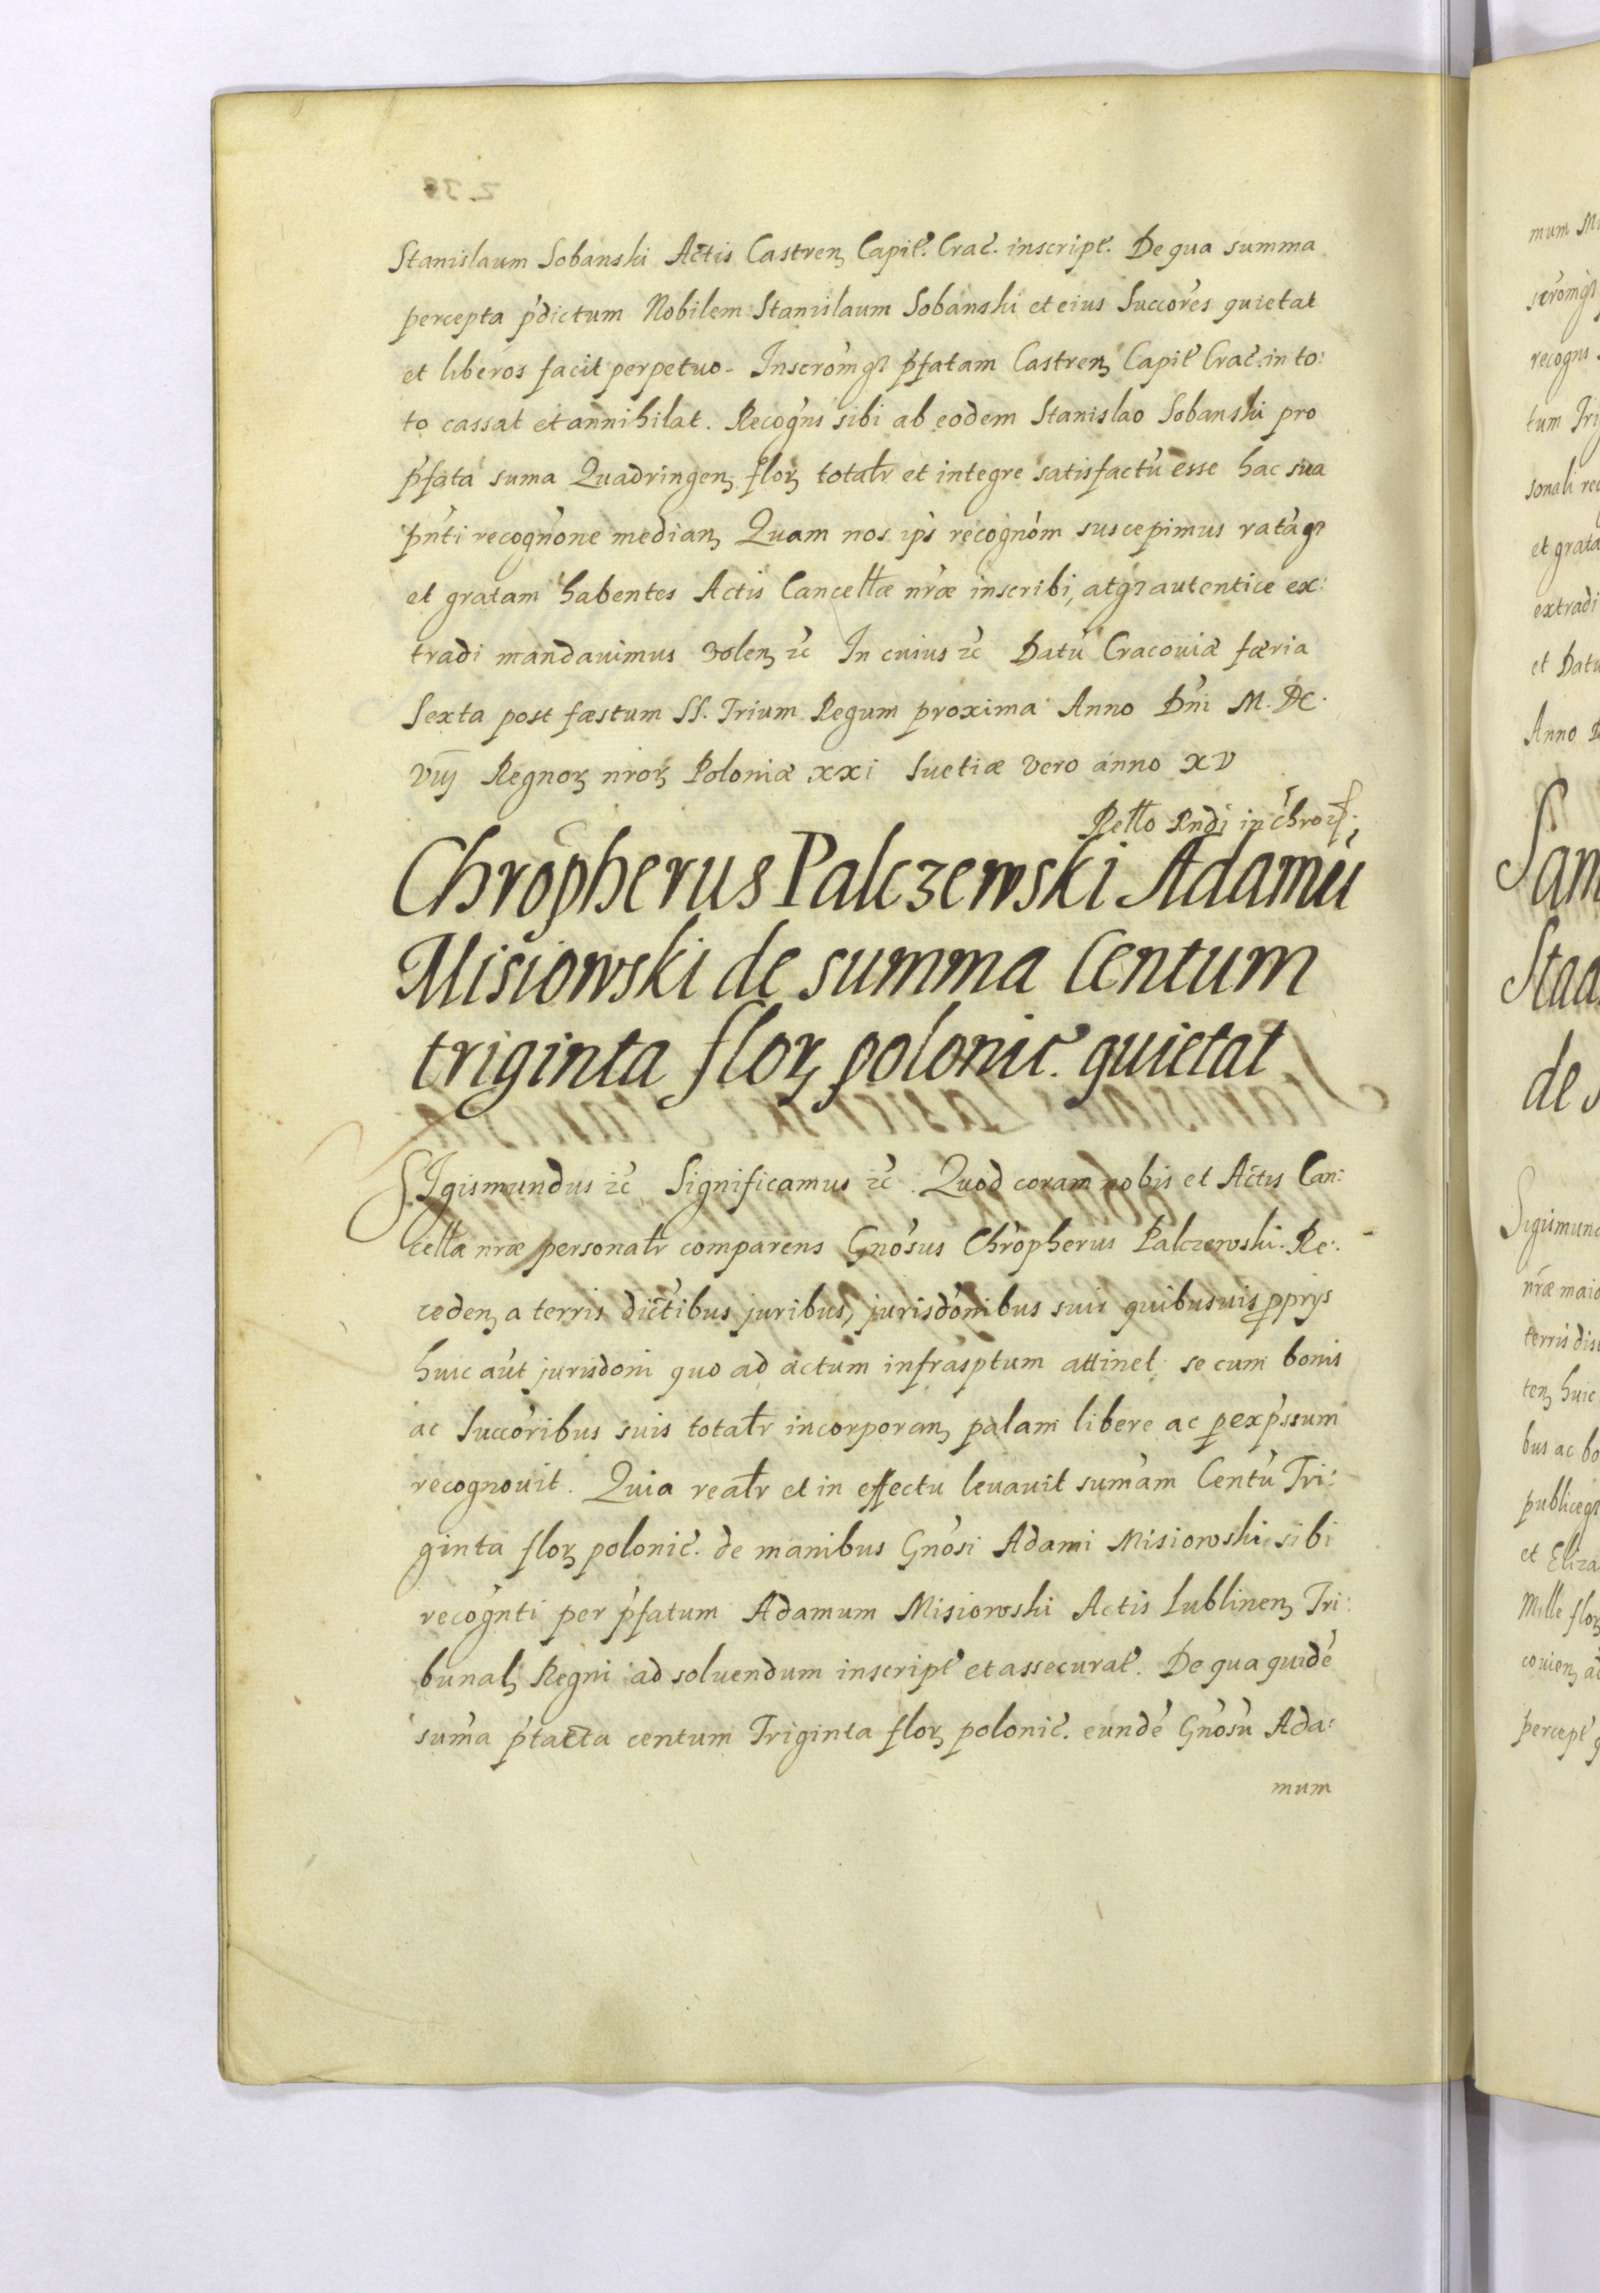 Stanislaum Sobanski Actis Castren̄ Capit̃. Crac̃. inscript̃. De qua summa
percepta p̃dictum Nobilem Stanislaum Sobanski et eius Succõres quietat
et liberos facit perpetuo. Inscrõmqꝫ p̃fatam Castrenꝫ Capit̃ Crac̃. in to:
to cassat et annihilat. Recogñs sibi ab eodem Stanislao Sobanski pro
p̃fata suma Quadringenꝫ florꝫ totalr̃ et integre satisfactũ esse hac sua
pñti recognõne medianꝫ Quam nos ip̃s recognõm suscepimus ratãqꝫ
et gratam habentes Actis Cancellæ nr̃æ inscribi, atqꝫ autentice ex:
tradi mandavimus volenꝫ ꝛc̃ In cuius ꝛc̃ Datũ Cracoviæ færia
Sexta post fæstum SS. Trium Regum proxima Anno Dñi M. DC.
VIIJ Regnorꝫ nr̃orꝫ Poloniæ XXI Suetiæ vero anno XV
Chrõpherus Palczewski Adamũ
Misiowski de summa Centum
triginta florꝫ polonic̃. quietat
SIgismundus ꝛc̃ Significamus ꝛc̃. Quod coram nobis et Actis Can:
cellæ nr̃æ personalr̃ comparens Gñosus Chrõpherus Palczewski. Re:
cedenꝫ a terris dictĩbus juribus, jurisdõnibus suis quibusuis ꝓprijs
huic aũt jurisdõni quo ad actum infrasp̃tum attinet se cum bonis
ac Succõribus suis totalr̃ incorporanꝫ palam libere ac ꝑ exp̃ssum
recognovit. Quia realr̃ et in effectu levavit sum̃am Centũ Tri:
ginta florꝫ polonic̃. de manibus Gñosi Adami Misiowski sibi
recogñti per p̃fatum Adamum Misiowski Actis Lublinenꝫ Tri:
bunalꝫ Regni ad soluendum inscript̃ et assecurat̃. De qua quidẽ
sum̃a p̃tacta centum Triginta florꝫ polonic̃. eundẽ Gñosũ Ada:
mum